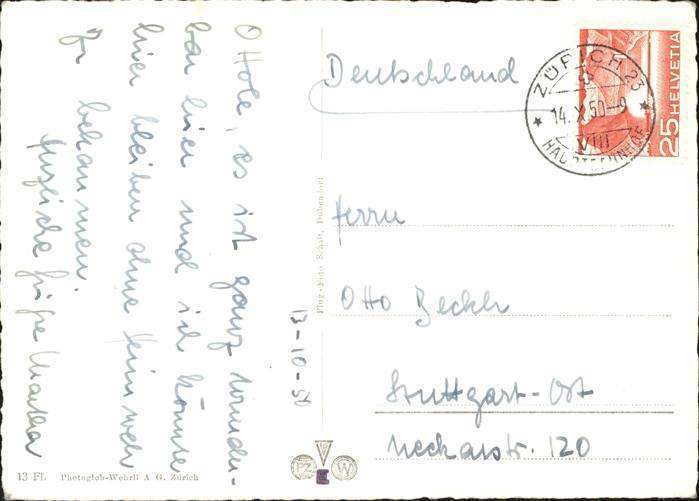 Ottole, es ist ganz wunder-
bar hier und ich könnte
hier bleiben ohne Heimweh
zu bekommen.
Herzliche Grüße Martha
13-10-50
13 Fl. Photoglob-Wehrli A G. Zürich
Flug-Foto Schalt, Dübendorf
Deutschland
ZÜRICH 23
14.X.50-9
VIII
HAUPTBAHNHOF
25 HELVETIA
Herrn
Otto
Stuttgart-Ost
Neckarstr. 120
PZ
E
W